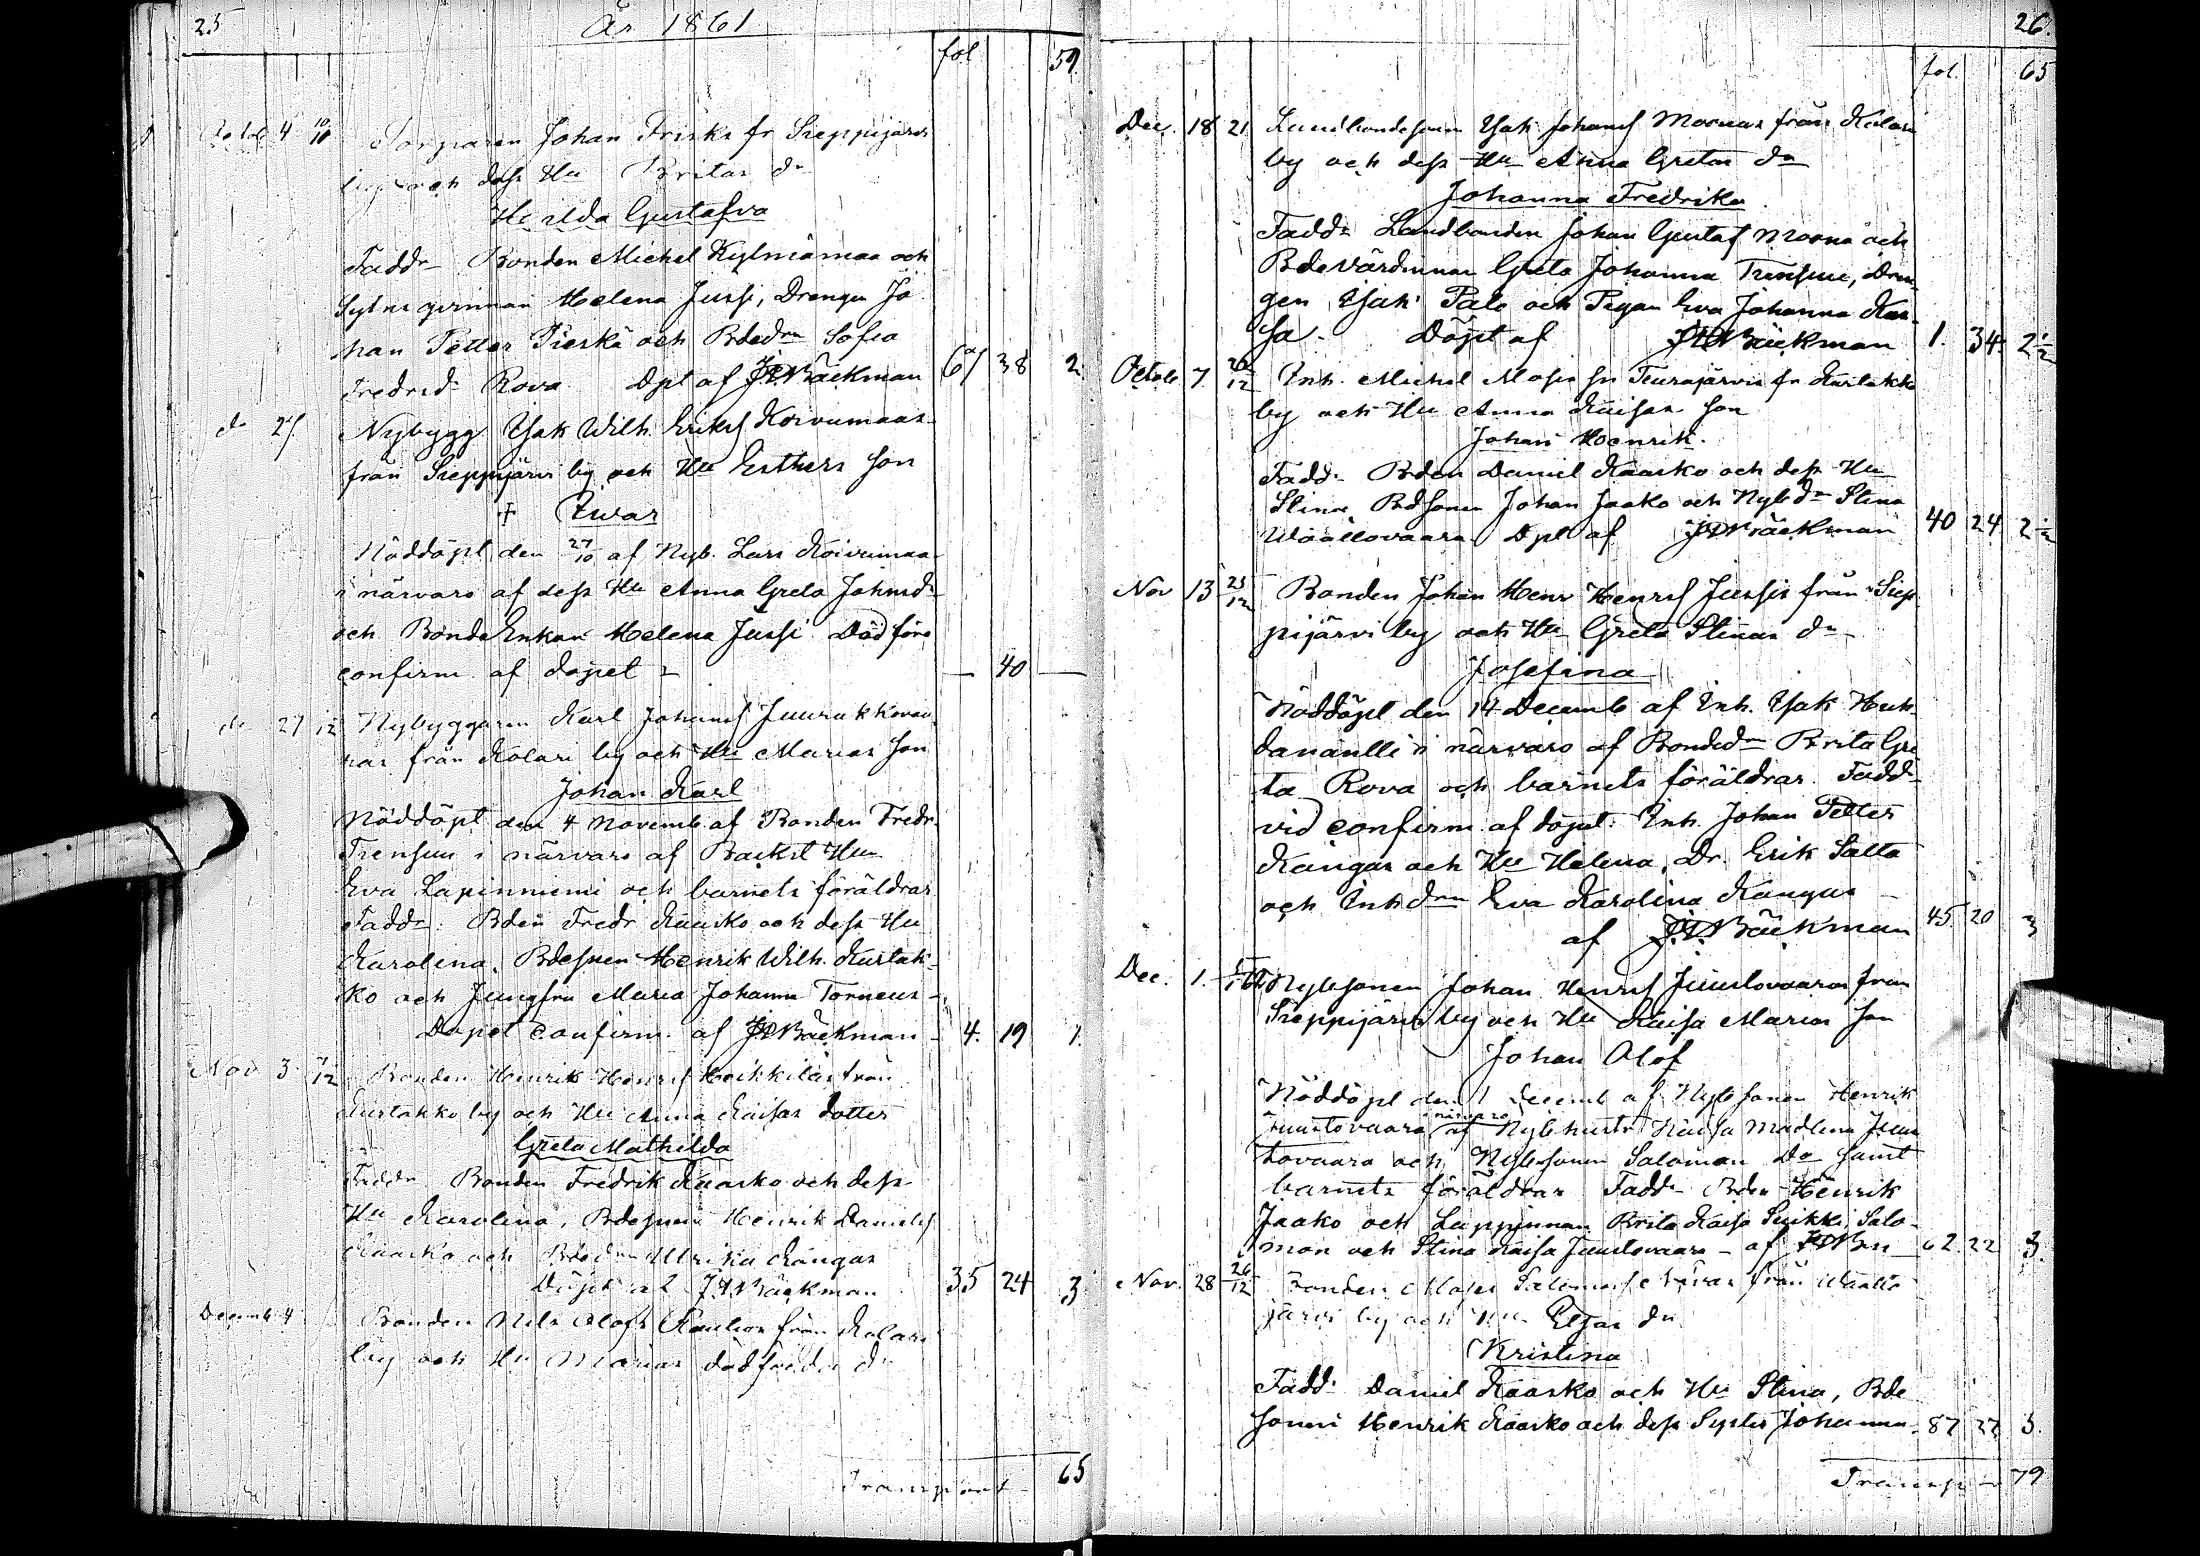 25
År 1861
fol 59
Octob 4 10/10 Torparen Johan Frisks fr Sieppijärvi
by och dess Hu Britas dr
Hilda Gustafva
Faddr Bonden Michel Kylmämaa och
Sytn qvinnan Helena Jussi, Drengen Jo
han Petter Pieskä och Bdedrn Sofia
Fredrsdr Rova Dpt af JWBäckman 67 38 2
do 27 Nybygg Isak Wilh. Erikss Koivumaas
från Sieppijärvi by och Hu Esthers son
+ Ivar
Nöddöpt den 27/10 af Nyb. Lars Koivumaa
i närvaro af dess Hu Anna Greta Johnsdr
och BondeEnkan Helena Jussi Död före
confirm af döpet - — 40 —
do 27 /12 Nybyggaren Karl Johanss Juurakkovaa
ras från Kolari by och Hu Marias son
Johan Karl
Nöddöpt den 4 Novemb. af Bonden Fredr.
Trensun i närvaro af Backst Hun
Eva Lapinniemi och barnets föräldrar
Faddr. Bden Fredr Kaarko och dess Hu
Karolina, Bdesonen Henrik Wilh. Kurtak-
ko och Jungfru Maria Johanna Torneus -
Döpet confirm. af JWBäckman 4. 19 1.
Nov 3 7/12 Bonden Henrik Henrss Heikkiläs från
Kurtakko by och Hu Anna Kaisas dotter
Greta Mathilda
Faddr Bonden Fredrik Kaarko och dess
Hu Karolina, Bdesonen Henrik Danielss
Kaarko och Bdedrn Ulrika Kangas
Döpt af JWBäckman 35 24 3
Decemb 4 Bonden Nils Olofs Rautios från Kolari
by och Hu Marias dödfödde dr
Transport 65
26.
fol. 65
Dec. 18 21 Landbondesonen Isak Johanss Moonas från Kolari
by och dess Hu Anna Gretas dr
Johanna Fredrika
Faddr Landbonden Johan Gustaf Moona och
Bdevärdinnan Greta Johanna Trensun, Dren-
gen Isak Palo och Pigan Eva Johanna Kar-
sa. Döpt af JWBäckman 1. 34 2½
Octob 7 26/12 Inh. Michel Mosis sn Teurajärvis fr Kurtakko
by och Hu Anna Kaisas son
Johan Henrik.
Faddr Bden Daniel Kaarko och dess Hu
Stina Bdsonen Johan Jaako och Nybdr Stina
Waattovaara Dpt af JWBäckman 40 24 2½
Nov 13 25/12 Bonden Johan Henr Henrss Jussis från Siep
pijärvi by och Hu Greta Stinas dr
Josefina
Nöddöpt den 14 Decemb af Inh. Isak Huh-
danantti i närvaro af Bondedn Brita Gre
ta Rova och barnets föräldrar. Faddr
vid confirm. af döpet: Inh. Johan Petter
Kangas och Hu Helena, Dr. Erik Satta
och Inhdrn Eva Karolina Kangas
af JWBäckman 45 20 3
Dec. 1. Nybsonen Johan Henrss Juustovaaras från
Sieppijärvi by och Hu Kaisa Marias son
Johan Olof
Nöddöpt den 1 Decemb af Nybsonen Henrik
Juustovaara i närvaro af Nybhustr Kaisa Madlena Juus
tovaara och Nybsonen Salomon Do samt
barnets föräldrar Faddr Bden Henrik
Jaako och Lappinnan Brita Kaisa Suikki, Salo-
mon och Stina Kaisa Juustovaara - af JWBn 62 22 3.
Nov. 28 26/12 Bonden Moses Salomonss Nivas från Waatto
järvi by och Hu Elsas dr
Kristina
Faddr Daniel Kaarko och Hu Stina, Bde
sonen Henrik Kaarko och dess Syster Johanna 87 27 3.
Transp - 79